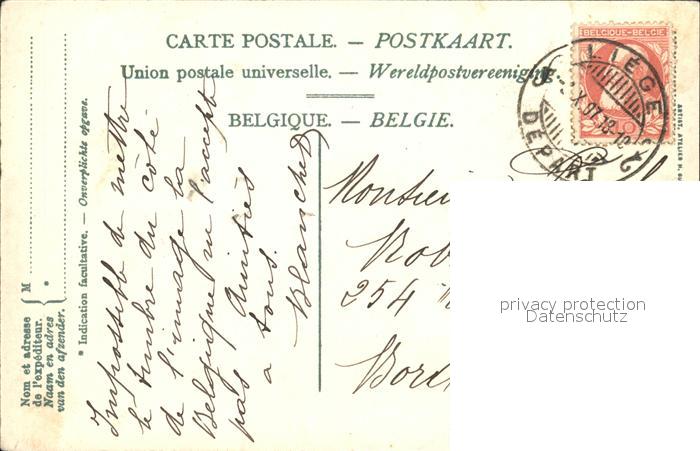 CARTE POSTALE. — POSTKAART.
Union postale universelle. — Wereldpostvereeniging.
BELGIQUE. — BELGIE.
BELGIQUE-BELGIE
LIÉGE
DÉPART
Nom et adresse
de l'expéditeur.
Naam en adres
van den afzender.
M
*
* Indication facultative. — Onverplichte opgave.
Impossible de mettre
le timbre du côté
de l'image la
Belgique ne l'accepte
pas Amitiés
a tous.
Blanche
Monsieu
Rob
254
Bord
privacy protection
Datenschutz